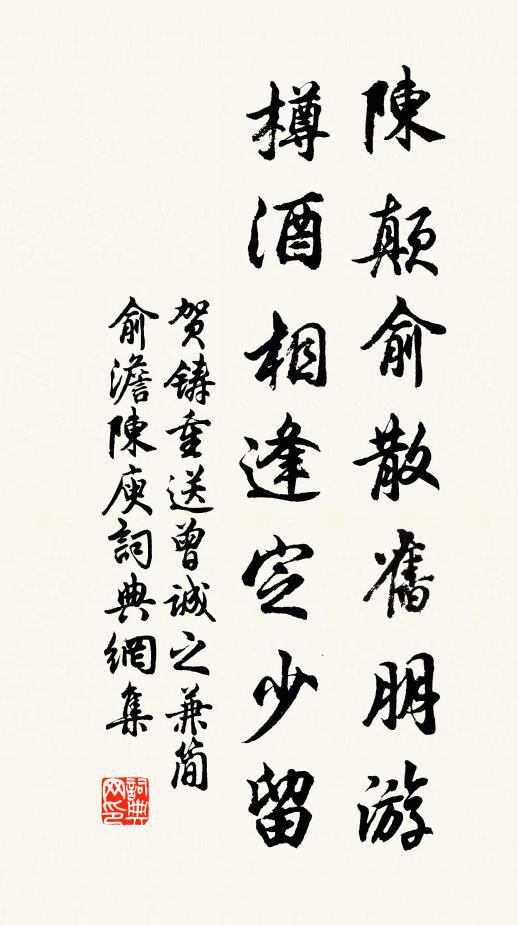 陳顛俞散舊朋游
樽酒相逢定少留
賀鑄重送曾誠之兼简
俞澹陳庾詞典網集
詞典網印